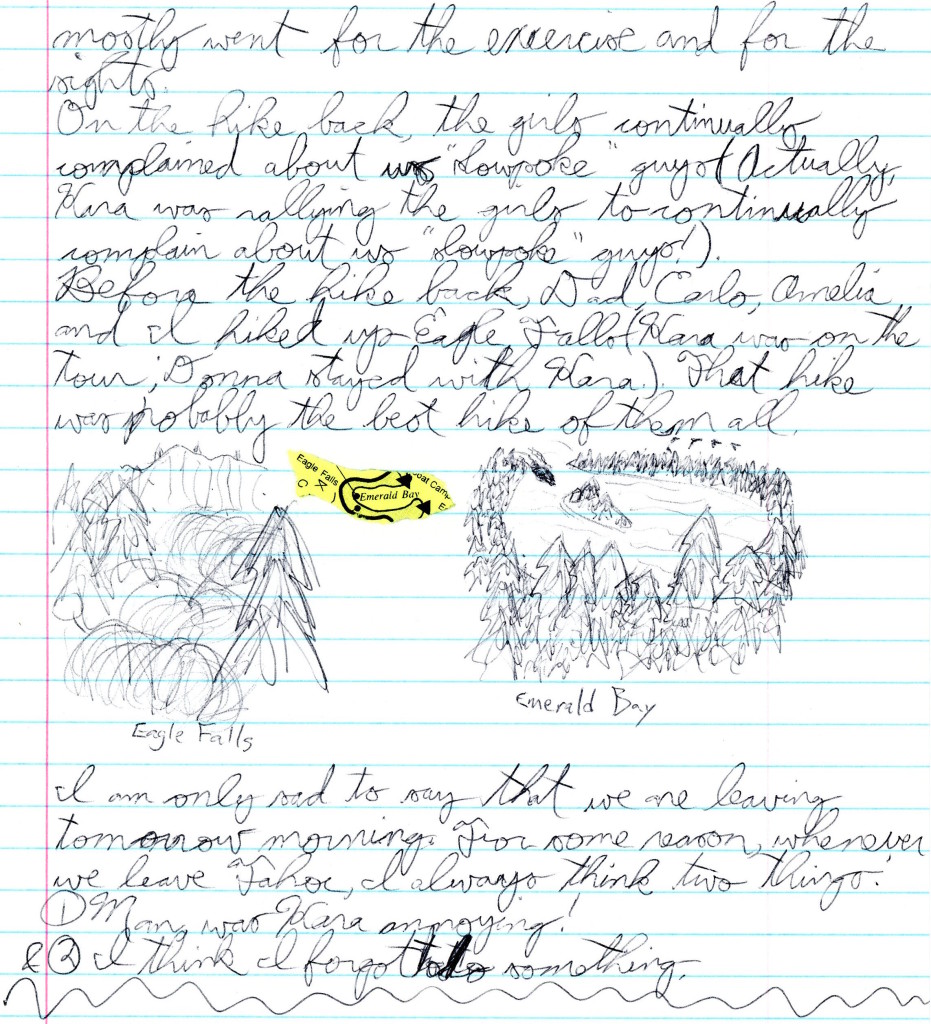 mostly went for the excercise and for the
sights.
On the hike back, the girls continually
complained about us "slowpoke" guys (Actually,
Kara was rallying the girls to continually
complain about us "slowpoke" guys!).
Before the hike back, Dad, Carlo, Amelia,
and I hiked up Eagle Falls (Kara was on the
tour; Donna stayed with Kara.). That hike
was probably the best hike of them all.
Eagle Falls
Emerald Bay
Emerald Bay
Eagle Falls
I am only sad to say that we are leaving
tomorrow morning. For some reason, whenever
we leave Tahoe, I always think two things:
① Man, was Kara annoying!
& ② I think I forgot something.